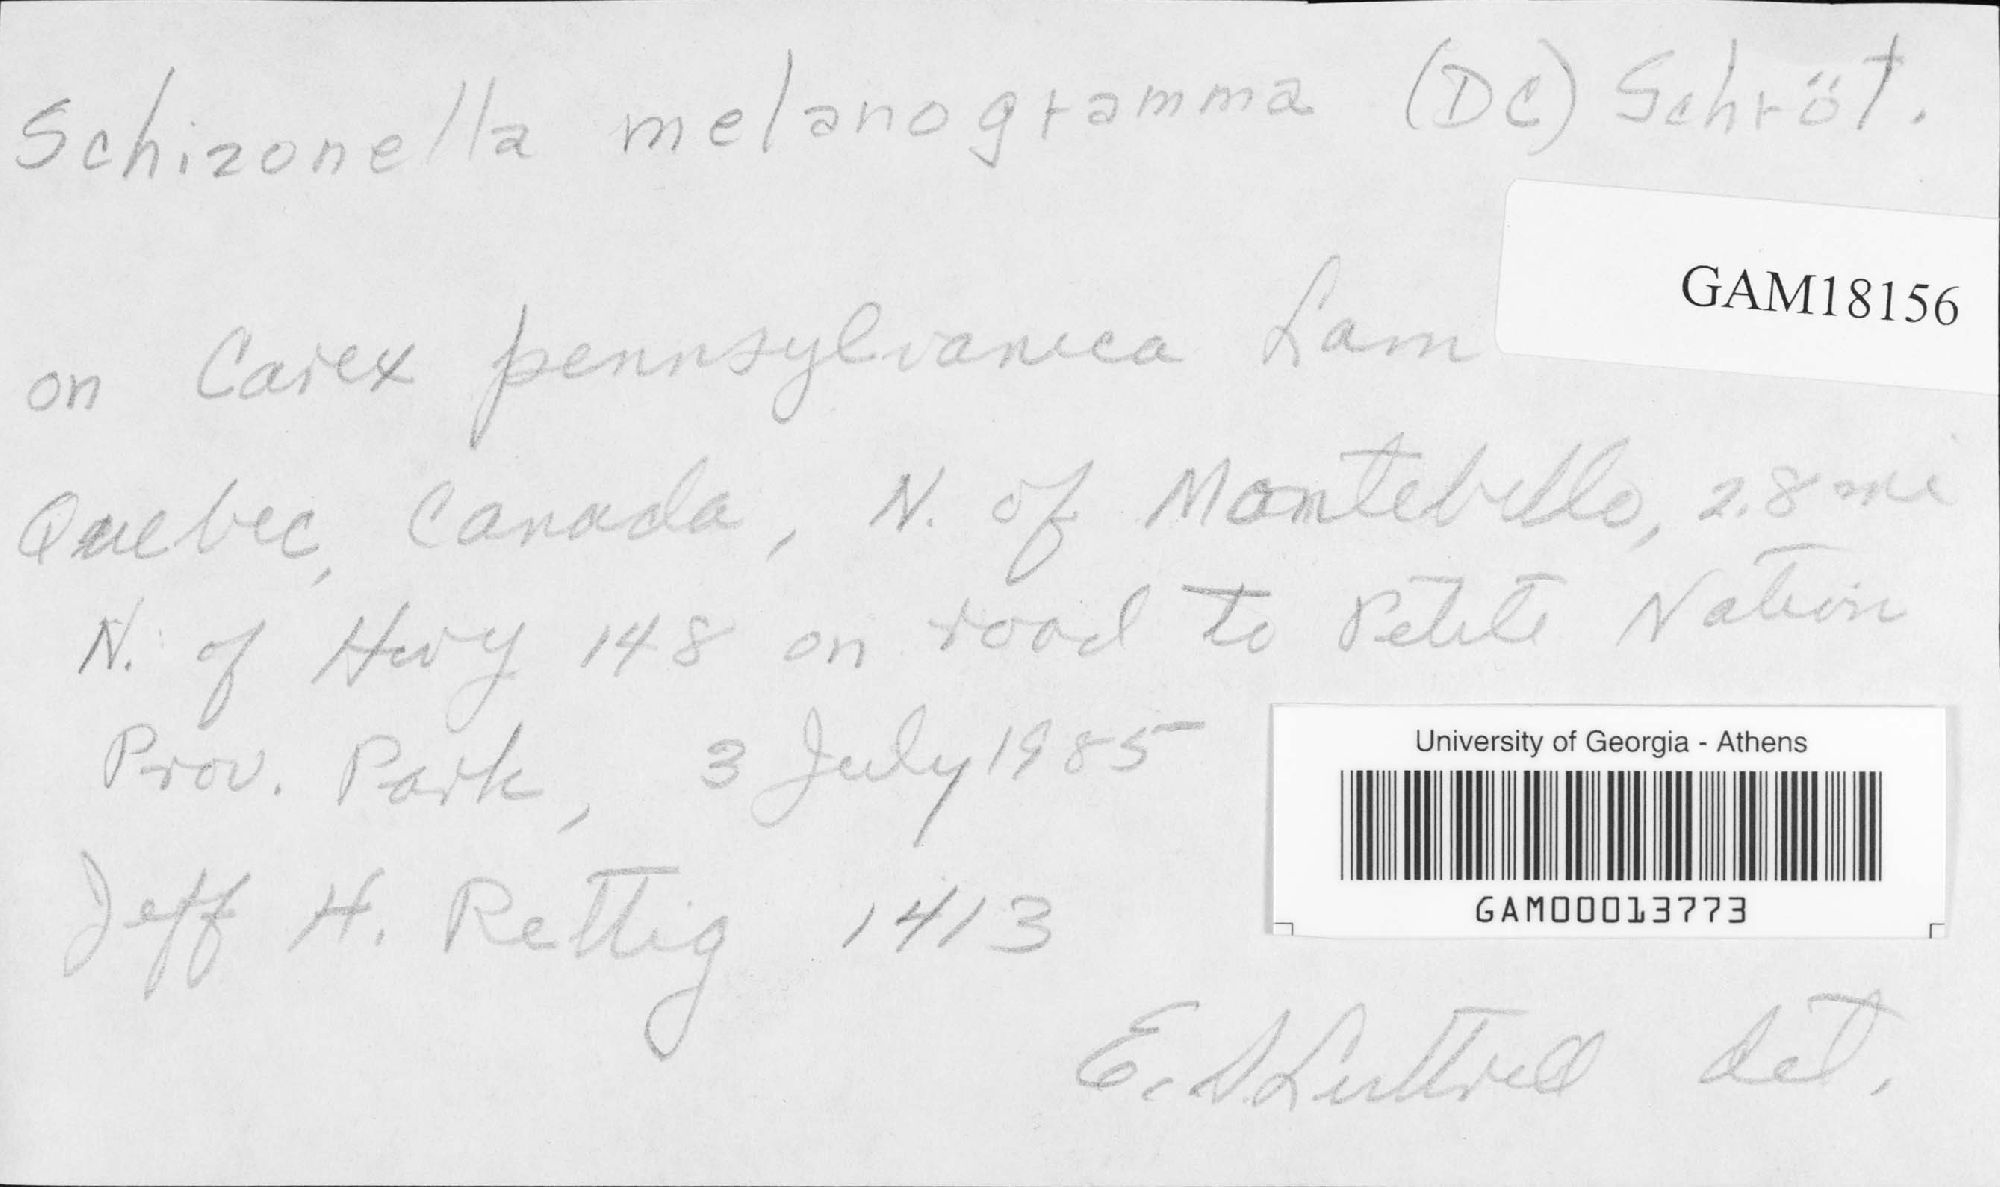 Schizonella melanogramma (DC) Schröt.
GAM18156
on Carex pennsylvanica Lam
Quebec, Canada, N. of Montebello, 2.8 mi
N. of Hwy 148 on road to Petite Nation
Prov. Park, 3 July 1985
University of Georgia - Athens
GAM00013773
Jeff H. Rettig 1413
E. S. Luttrell det.